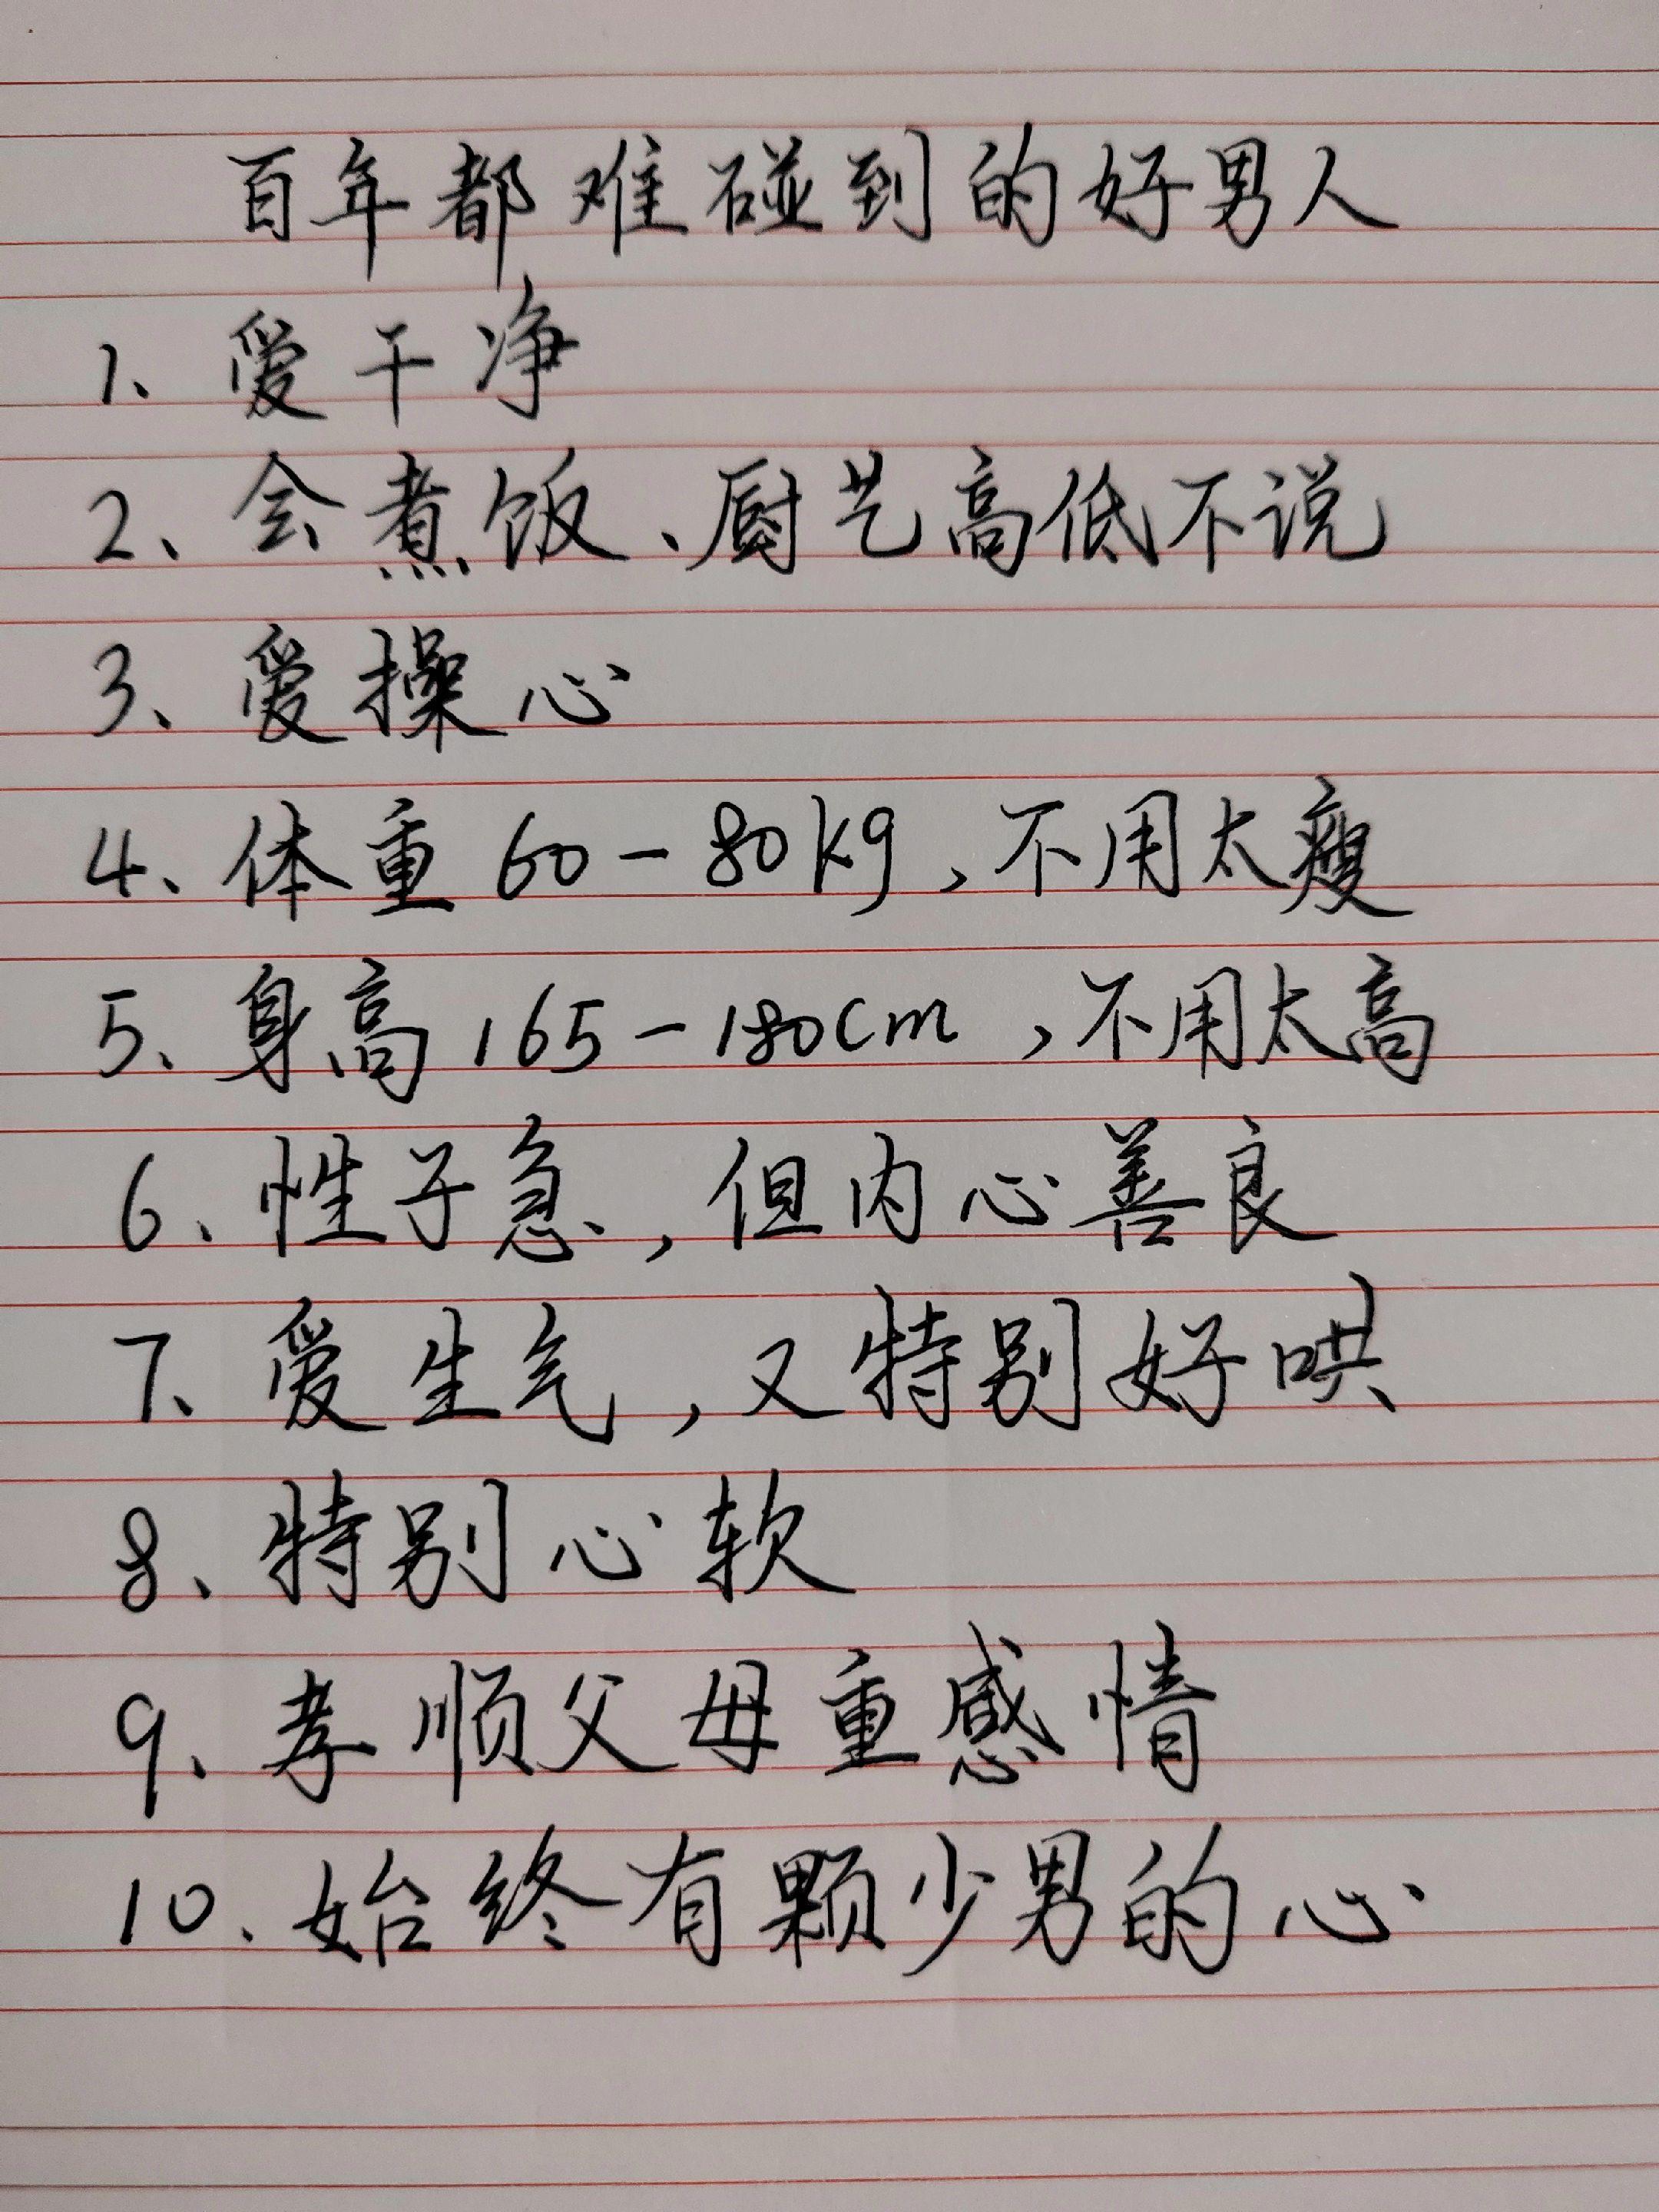 百年都难碰到的好男人
1、爱干净
2、会煮饭、厨艺高低不说
3、爱操心
4、体重60-80kg,不用太瘦
5、身高165-180cm,不用太高
6、性子急,但内心善良
7、爱生气,又特别好哄
8、特别心软
9、孝顺父母重感情
10、始终有颗少男的心